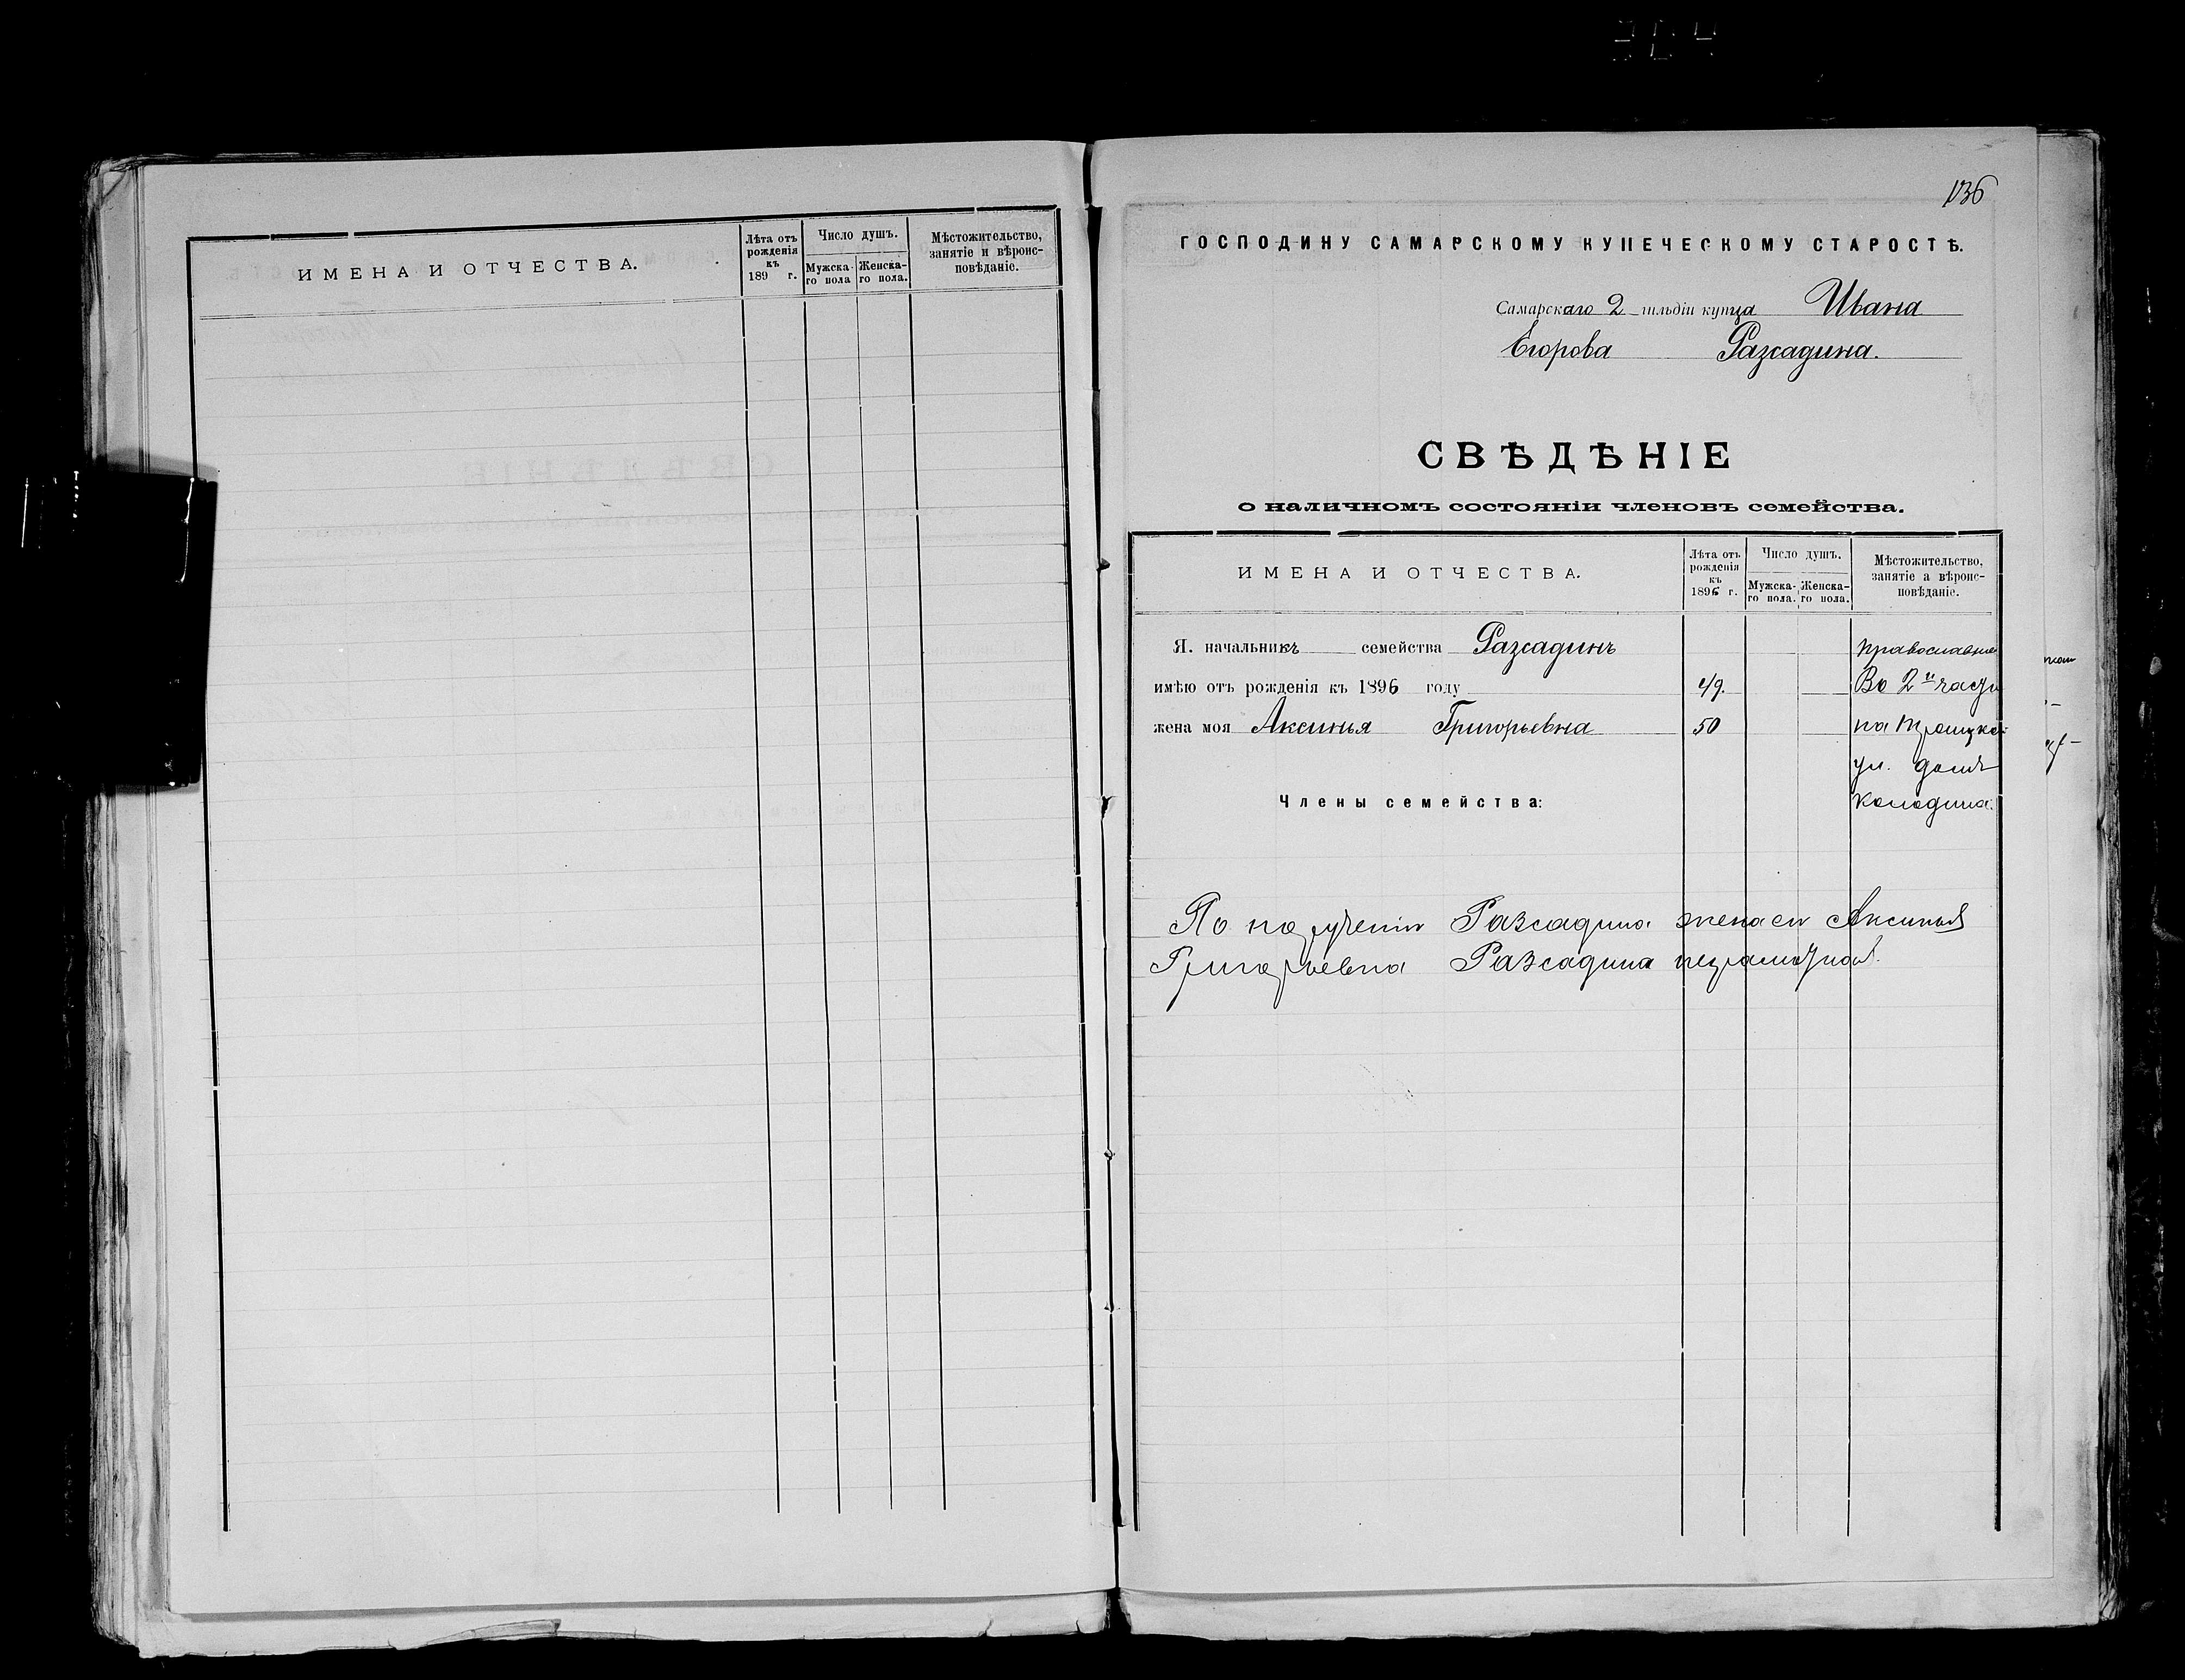 ИМЕНА И ОТЧЕСТВА.
Лѣта отъ рожденія къ 189 г.
Число душъ.
Мужска-го пола
Женска-го пола.
Мѣстожительство, занятіе и вѣроис-повѣданіе.
136
ГОСПОДИНУ САМАРСКОМУ КУПЕЧЕСКОМУ СТАРОСТѢ.
Самарскаго 2 гильдіи купца Ивана
Егорова Разсадина.
СВѢДѢНІЕ
о наличномъ состояніи членовъ семейства.
ИМЕНА И ОТЧЕСТВА.
Лѣта отъ рожденія къ 1896 г.
Число душъ.
Мужска-го пола.
Женска-го пола.
Мѣстожительство, занятіе а вѣроис-повѣданіе.
Я. начальникъ семейства Разсадинъ
имѣю отъ рожденія къ 1896 году 49. Во 2й части
жена моя Аксинья Григорьевна 50 на Троицкой
ул. домъ
Члены семейства:
По порученію Разсадина жена ен Аксинья
Григорьевна Разсадина неграмотной.